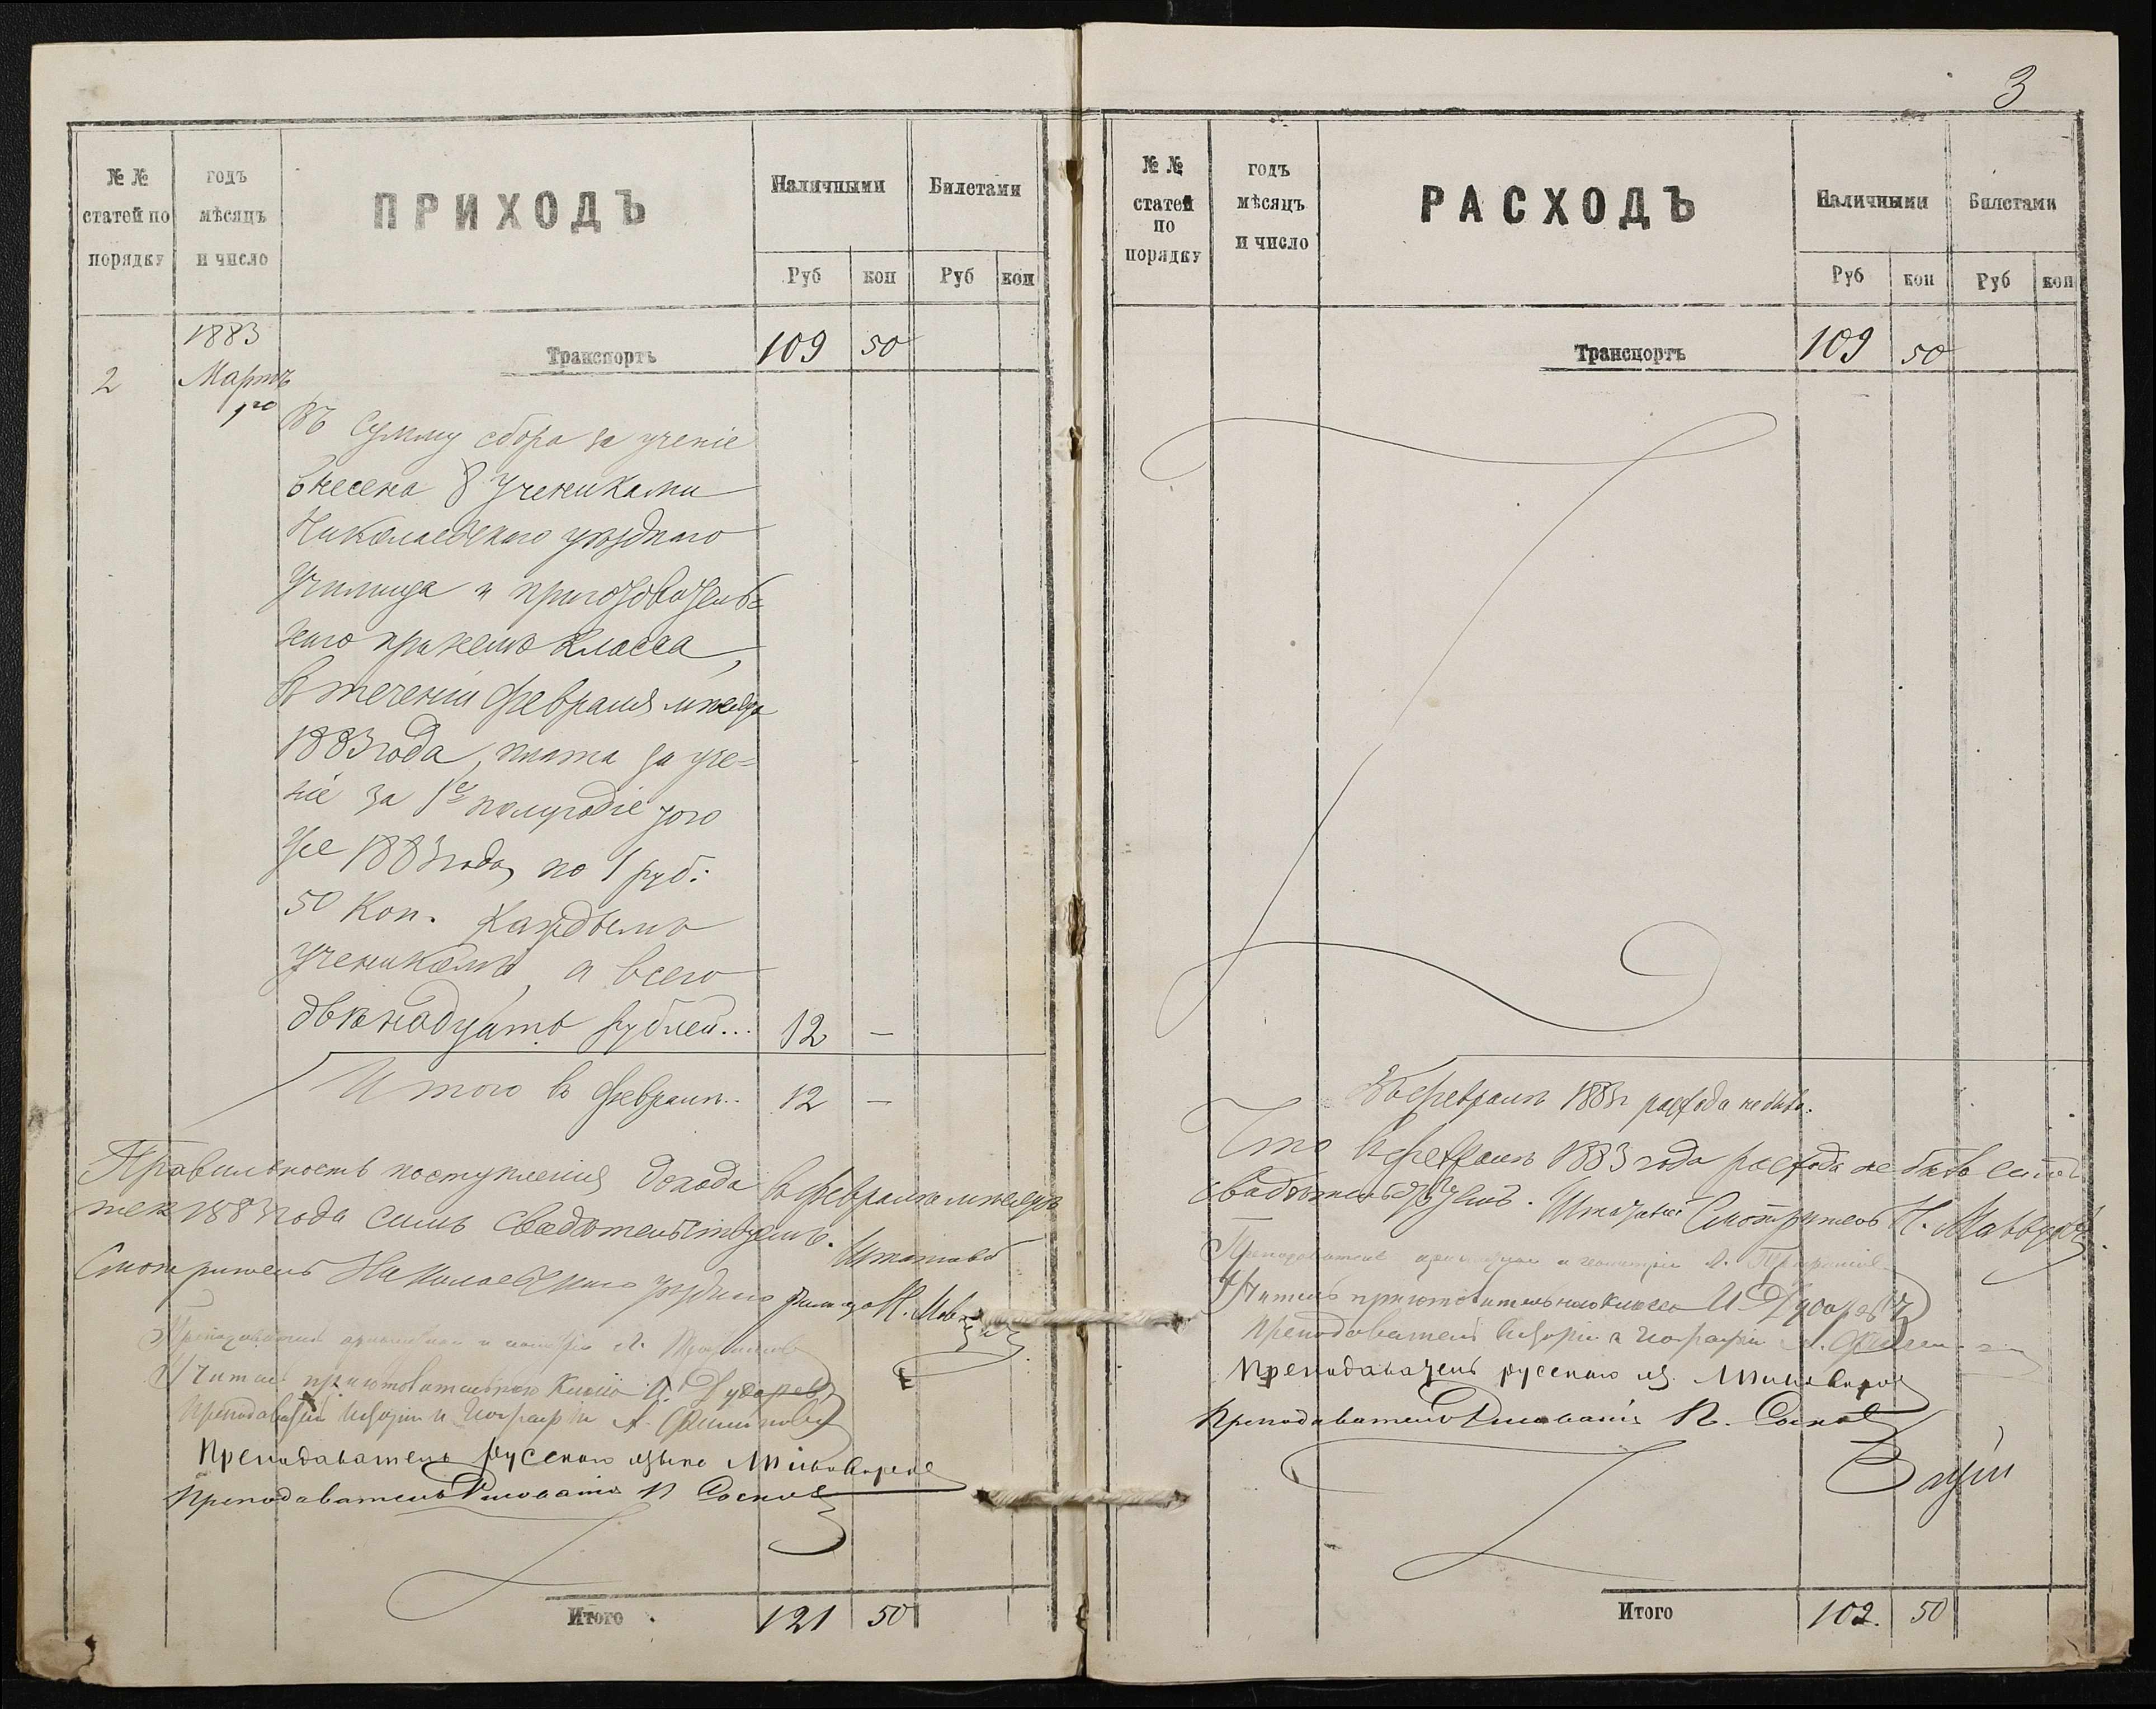 № №
статей по
порядку
годъ
мѣсяцъ
и число
ПРИХОДЪ
Наличными
Билетами
Руб
коп
Руб
коп
1883
Транспортъ 109 50
2 Мартъ
1го
Въ Сумму сбора за ученіе
внесена 8 Учениками
Николаевскаго уѣзднаго
Училища и приготовитель=
наго при немъ класса,
въ теченіи Февраля мѣсяца
1883 года, плата за уче=
ніе за 1е полугодіе того
же 1883 года, по 1 руб:
50 Коп. Каждымъ
Ученикомъ, а всего
двѣнадцать рублей... 12 —
Итого въ Февралѣ.. 12 —
Правильность поступленія дохода въ Февралѣ мѣсяцѣ
1883 года симъ свидѣтельствуемъ.
Штатный
Смотритель Николаевскаго уѣзднаго
Учитель приготовительнаго Класса
Преподаватель Исторіи и Географіи А.
Преподаватель русскаго языка
Преподаватель Рисованія П.
Итого 121 50
3
№ №
статей
по
порядку
годъ
мѣсяцъ
и число
РАСХОДЪ
Наличными
Билетами
Руб
коп
Руб
коп
Транспортъ 109 50
Въ Февралѣ 1883 г расхода не было.
Что въ Февралѣ 1883 года расхода не было симъ
свидѣтельствуемъ. Штатный Смотритель Н.
Преподаватель ариѳметики и геометріи
Учитель приготовительнаго Класса И
Преподаватель Исторіи и Географіи А.
Преподаватель русскаго яз.
Преподаватель Рисованія П.
Итого 102. 50